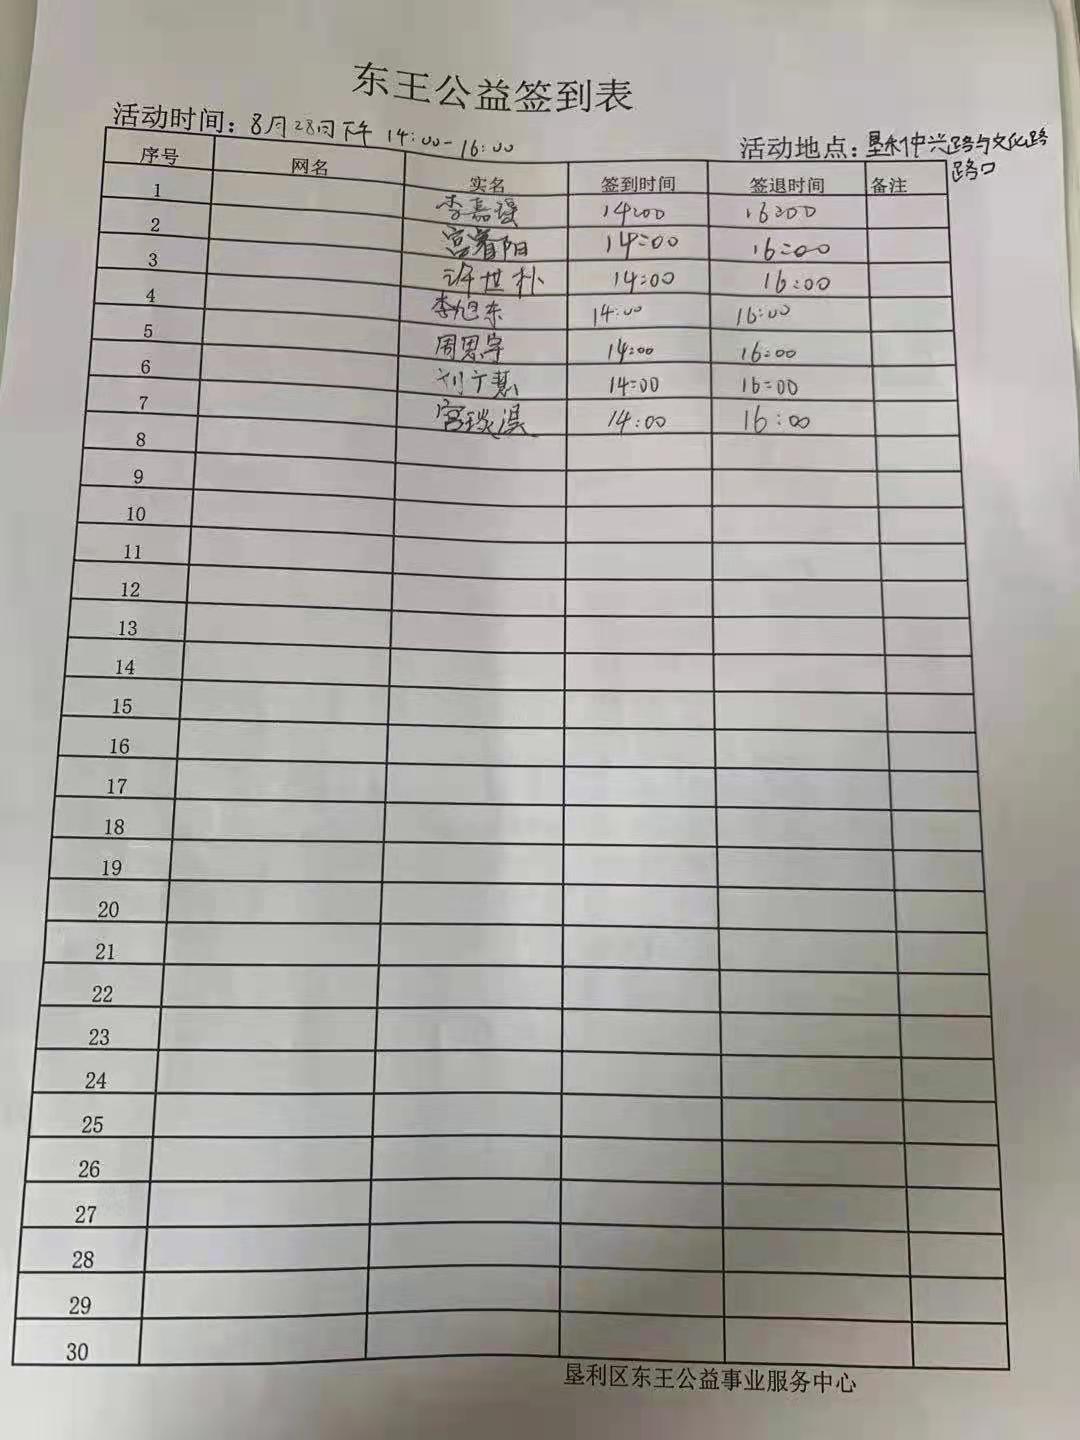 东王公益签到表
活动时间：8月28日下午 14:00-16:00 活动地点：垦利中兴路与文化路
路口
序号 网名 实名 签到时间 签退时间 备注
1 李嘉 14:00 16:00
2 宫春阳 14:00 16:00
3 许世朴 14:00 16:00
4 李旭东 14:00 16:00
5 周思宇 14:00 16:00
6 刘广慧 14:00 16:00
7 宫琰淏 14:00 16:00
8
9
10
11
12
13
14
15
16
17
18
19
20
21
22
23
24
25
26
27
28
29
30
垦利区东王公益事业服务中心